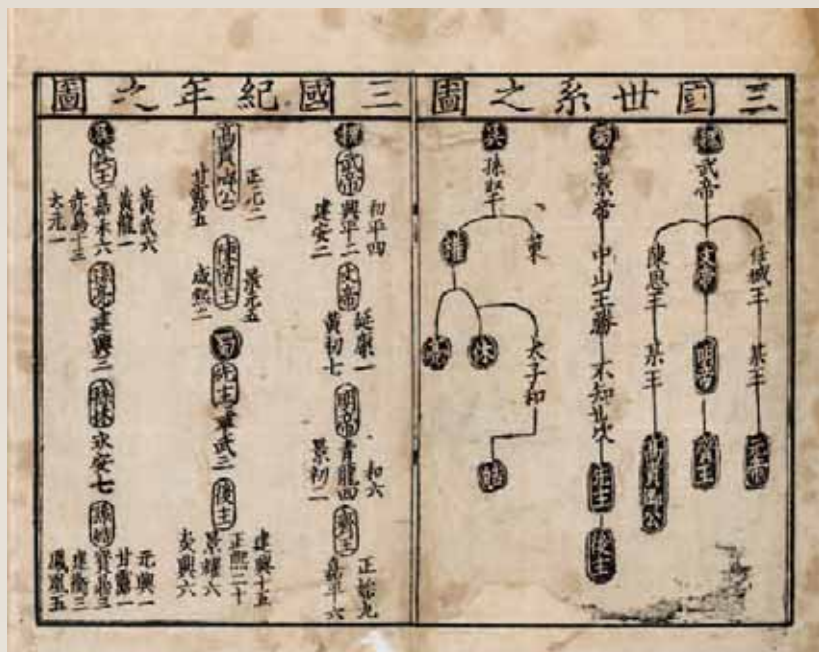 三囯世系之圖
魏
武帝
任城王
某王
元帝
文帝
明帝
齊王
陳思王
某王
高貴鄉公
蜀
漢景帝
中山王勝
不知其次
先主
後主
吳
孫堅
策
權
太子和
休
亮
皓
三國紀年之圖
魏
武帝
初平四
興平二
建安二
文帝
延康一
黃初七
明帝
和六
青龍四
景初二
齊王
正始九
嘉平六
高貴鄉公
正元二
甘露五
陳留王
景元五
咸熙二
蜀
先主
章武三
後主
建興十五
正熙二十
景耀六
炎興六
吳
黃武六
黃龍一
嘉禾六
赤烏十三
太元一
孫亮
建興二
孫休
永安七
孫皓
元興一
甘露一
寶鼎三
建衡三
鳳凰五